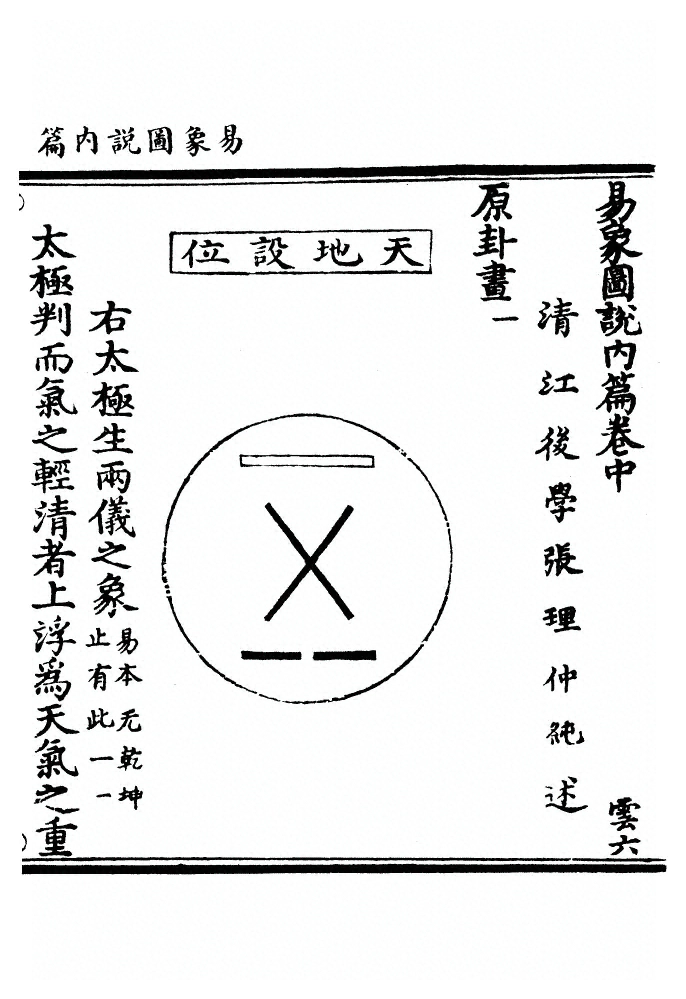 易象圖說內篇
易象圖說內篇卷中 雲六
清江後學張理仲純述
原卦畫一
天地設位
右太極生兩儀之象
易本无乾坤
止有此一一
太極判而氣之輕清者上浮爲天氣之重